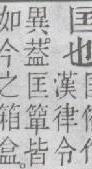 匡也漢律令
異葢匡簞皆
如今之箱盒。